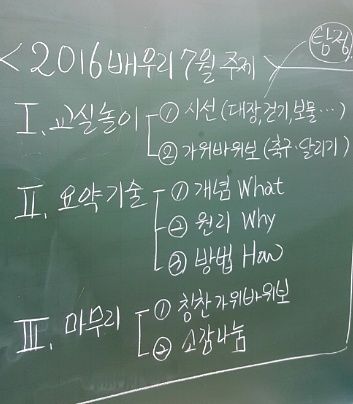 탐정
<2016 배우리 7월 주제>
I. 교실놀이 ① 시선 (대장, 걷기, 보물…)
② 가위바위보 (축구·달리기)
II. 요약기술 ① 개념 What
② 원리 Why
③ 방법 How
III. 마무리 ① 칭찬가위바위보
② 소감나눔